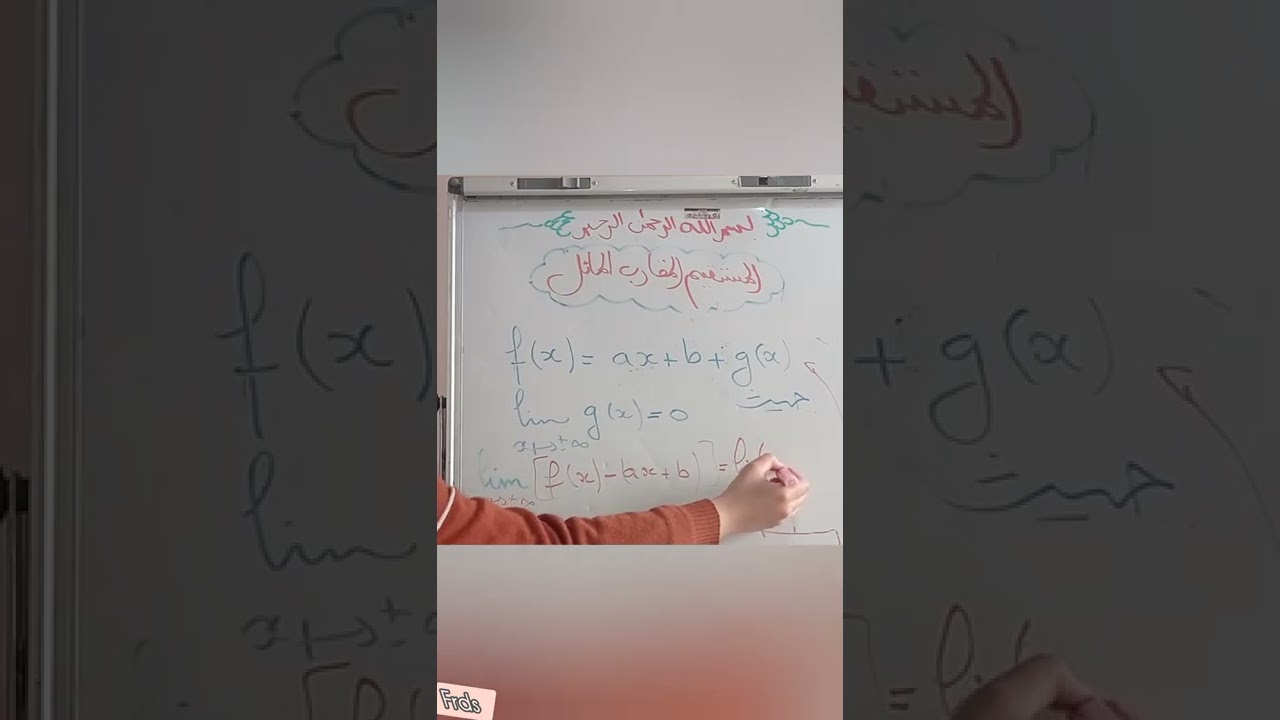 بسم الله الرحمن الرحيم
المستقيم المقارب المائل
f(x) = ax + b + g(x)
lim g(x) = 0 حيث
x→±∞
lim [f(x) - (ax + b)] = li
x→±∞
Frds